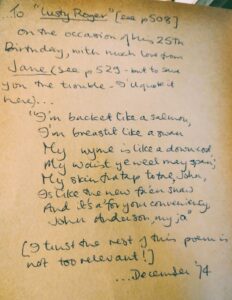 To "Lusty Roger" [see p508]
on the occasion of his 25th
Birthday, with much love from
Jane (see p529 - but to save
you the trouble - I quote it
here)...
"I'm backet like a salmon,
I'm breastit like a swan
My wyme is like a down-cod
My waist ye weel may span;
My skin fra tap to tae, John,
Is like the new fa'en snaw
And it's a' for your conveniency,
John Anderson, my jo"
[I trust the rest of this poem is
not too relevant!]
...December '74